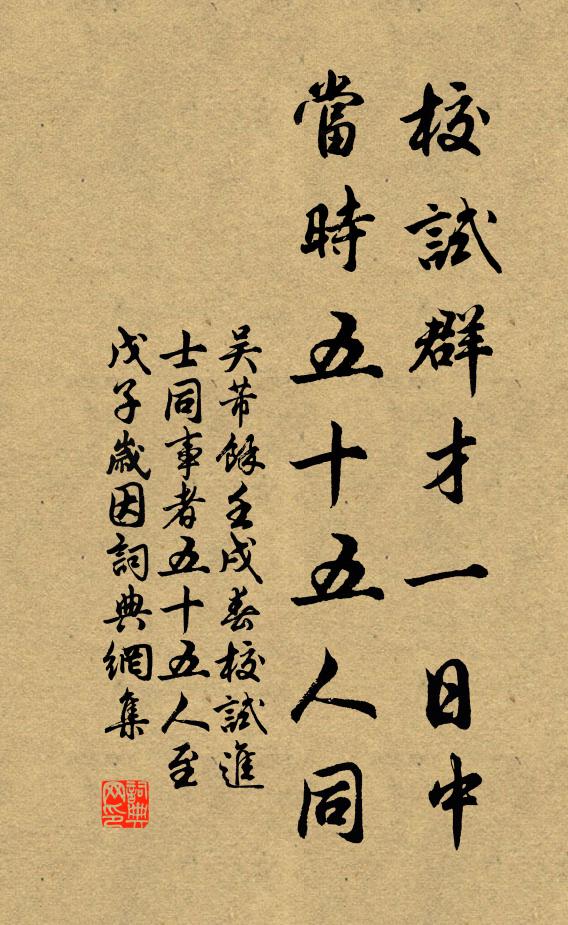 校試群才一日中
當時五十五人同
吴芾餘壬戌春校試進
士同事者五十五人至
戊子歲因詞典網集
詞典
网印